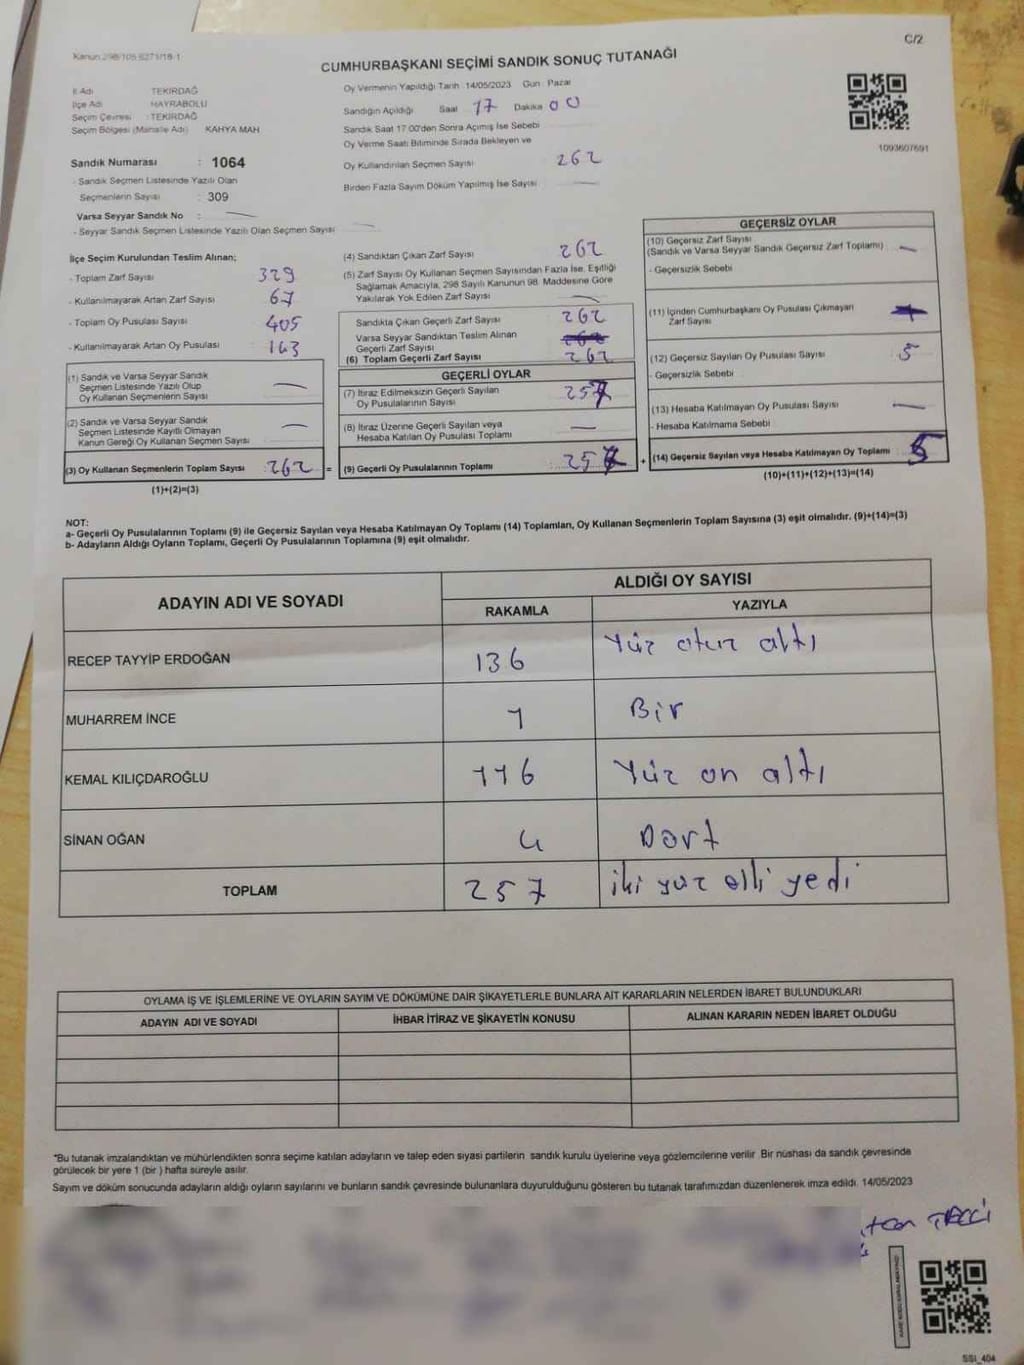 C/2
Kanun 298/105 6271/18-1
CUMHURBAŞKANI SEÇİMİ SANDIK SONUÇ TUTANAĞI
İl Adı TEKİRDAĞ
İlçe Adı HAYRABOLU
Seçim Çevresi : TEKİRDAĞ
Seçim Bölgesi (Mahalle Adı) KAHYA MAH
Sandık Numarası : 1064
- Sandık Seçmen Listesinde Yazılı Olan
Seçmenlerin Sayısı : 309
Varsa Seyyar Sandık No :
- Seyyar Sandık Seçmen Listesinde Yazılı Olan Seçmen Sayısı
Oy Vermenin Yapıldığı Tarih 14/05/2023 Gün Pazar
Sandığın Açıldığı Saat 17 Dakika 00
Sandık Saat 17.00'den Sonra Açımış İse Sebebi
Oy Verme Saati Bitiminde Sırada Bekleyen ve
Oy Kullandırılan Seçmen Sayısı 262
Birden Fazla Sayım Döküm Yapılmış İse Sayısı
1093607691
İlçe Seçim Kurulundan Teslim Alınan;
- Toplam Zarf Sayısı 329
- Kullanılmayarak Artan Zarf Sayısı 67
- Toplam Oy Pusulası Sayısı 405
- Kullanılmayarak Artan Oy Pusulası 143
(1) Sandık ve Varsa Seyyar Sandık
Seçmen Listesinde Yazılı Olup
Oy Kullanan Seçmenlerin Sayısı
(2) Sandık ve Varsa Seyyar Sandık
Seçmen Listesinde Kayıtlı Olmayan
Kanun Gereği Oy Kullanan Seçmen Sayısı
(3) Oy Kullanan Seçmenlerin Toplam Sayısı 262 =
(1)+(2)=(3)
(4) Sandıktan Çıkan Zarf Sayısı 262
(5) Zarf Sayısı Oy Kullanan Seçmen Sayısından Fazla İse, Eşitliği
Sağlamak Amacıyla, 298 Sayılı Kanunun 98. Maddesine Göre
Yakılarak Yok Edilen Zarf Sayısı
Sandıkta Çıkan Geçerli Zarf Sayısı 262
Varsa Seyyar Sandıktan Teslim Alınan
Geçerli Zarf Sayısı
(6) Toplam Geçerli Zarf Sayısı 262
GEÇERLİ OYLAR
(7) İtiraz Edilmeksizin Geçerli Sayılan
Oy Pusulalarının Sayısı 257
(8) İtiraz Üzerine Geçerli Sayılan veya
Hesaba Katılan Oy Pusulası Toplamı
(9) Geçerli Oy Pusulalarının Toplamı 257 +
GEÇERSİZ OYLAR
(10) Geçersiz Zarf Sayısı
(Sandık ve Varsa Seyyar Sandık Geçersiz Zarf Toplamı)
- Geçersizlik Sebebi
(11) İçinden Cumhurbaşkanı Oy Pusulası Çıkmayan
Zarf Sayısı
(12) Geçersiz Sayılan Oy Pusulası Sayısı 5
- Geçersizlik Sebebi
(13) Hesaba Katılmayan Oy Pusulası Sayısı
- Hesaba Katılmama Sebebi
(14) Geçersiz Sayılan veya Hesaba Katılmayan Oy Toplamı 5
(10)+(11)+(12)+(13)=(14)
NOT:
a- Geçerli Oy Pusulalarının Toplamı (9) ile Geçersiz Sayılan veya Hesaba Katılmayan Oy Toplamı (14) Toplamları, Oy Kullanan Seçmenlerin Toplam Sayısına (3) eşit olmalıdır. (9)+(14)=(3)
b- Adayların Aldığı Oyların Toplamı, Geçerli Oy Pusulalarının Toplamına (9) eşit olmalıdır.
ADAYIN ADI VE SOYADI
ALDIĞI OY SAYISI
RAKAMLA YAZIYLA
RECEP TAYYİP ERDOĞAN 136 Yüz otuz altı
MUHARREM İNCE 1 Bir
KEMAL KILIÇDAROĞLU 116 Yüz on altı
SİNAN OĞAN 4 Dört
TOPLAM 257 iki yüz elli yedi
OYLAMA İŞ VE İŞLEMLERİNE VE OYLARIN SAYIM VE DÖKÜMÜNE DAİR ŞİKAYETLERLE BUNLARA AİT KARARLARIN NELERDEN İBARET BULUNDUKLARI
ADAYIN ADI VE SOYADI İHBAR İTİRAZ VE ŞİKAYETİN KONUSU ALINAN KARARIN NEDEN İBARET OLDUĞU
"Bu tutanak imzalandıktan ve mühürlendikten sonra seçime katılan adayların ve talep eden siyasi partilerin sandık kurulu üyelerine veya gözlemcilerine verilir .Bir nüshası da sandık çevresinde
görülecek bir yere 1 (bir ) hafta süreyle asılır.
Sayım ve döküm sonucunda adayların aldığı oyların sayılarını ve bunların sandık çevresinde bulunanlara duyurulduğunu gösteren bu tutanak tarafımızdan düzenlenerek imza edildi. 14/05/2023
SSI_404